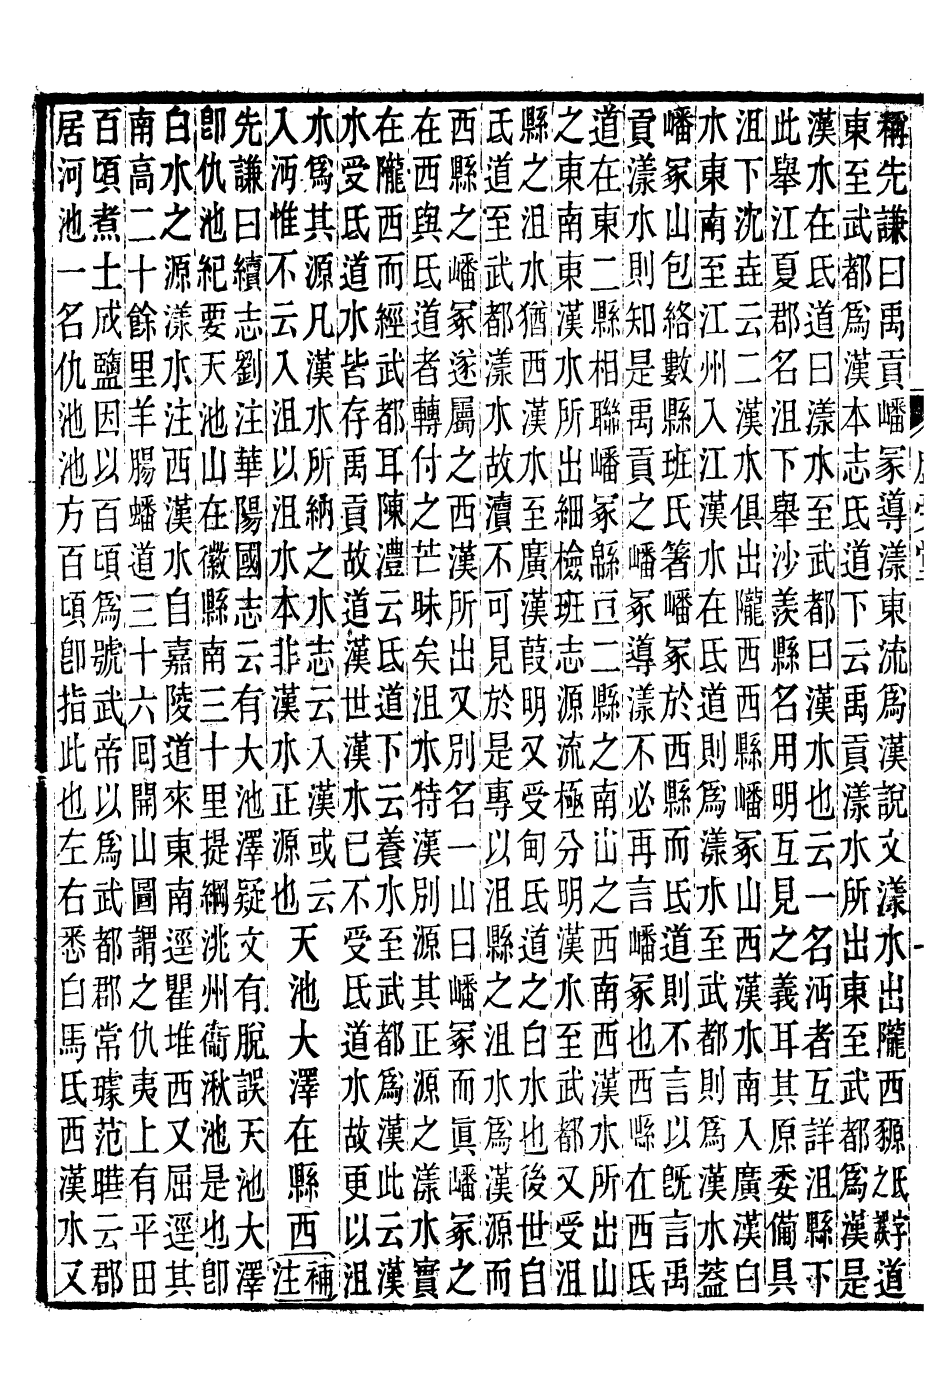 稱先謙曰禹貢嶓冢導漾東流爲漢說文漾水出隴西豲氐字之譌道
東至武都爲漢本志氐道下云禹貢漾水所出東至武都爲漢是
漢水在氐道曰漾水至武都曰漢水也云一名沔者互詳沮縣下
此舉江夏郡名沮下舉沙羨縣名用明互見之義耳其原委僃具
沮下沈垚云二漢水俱出隴西西縣嶓冢山西漢水南入廣漢白
水東南至江州入江漢水在氐道則爲漾水至武都則爲漢水蓋
嶓冢山包絡數縣班氏箸嶓冢於西縣而氐道則不言以旣言禹
貢漾水則知是禹貢之嶓冢導漾不必再言嶓冢也西縣在西氐
道在東二縣相聯嶓冢緜亘二縣之南山之西南西漢水所出山
之東南東漢水所出細檢班志源流極分明漢水至武都又受沮
縣之沮水猶西漢水至廣漢葭明又受甸氐道之白水也後世自
氐道至武都漾水故瀆不可見於是專以沮縣之沮水爲漢源而
西縣之嶓冢遂屬之西漢所出又別名一山曰嶓冢而眞嶓冢之
在西與氐道者轉付之芒昧矣沮水特漢別源其正源之漾水實
在隴西而經武都耳陳澧云氐道下云養水至武都爲漢此云漢
水受氐道水皆存禹貢故道漢世漢水已不受氐道水故更以沮
水爲其源凡漢水所納之水志云入漢或云
入沔惟不云入沮以沮水本非漢水正源也
天池大澤在縣西
補注
先謙曰續志劉注華陽國志云有大池澤疑文有脫誤天池大澤
卽仇池紀要天池山在徽縣南三十里提綱洮州衞湫池是也卽
白水之源漾水注西漢水白嘉陵道來東南逕瞿堆西又屈逕其
南高二十餘里羊腸蟠道三十六回開山圖謂之仇夷上有平田
百頃煮土成鹽因以百頃爲號武帝以爲武都郡常璩范曄云郡
居河池一名仇池池方百頃卽指此也左右悉白馬氐西漢水又